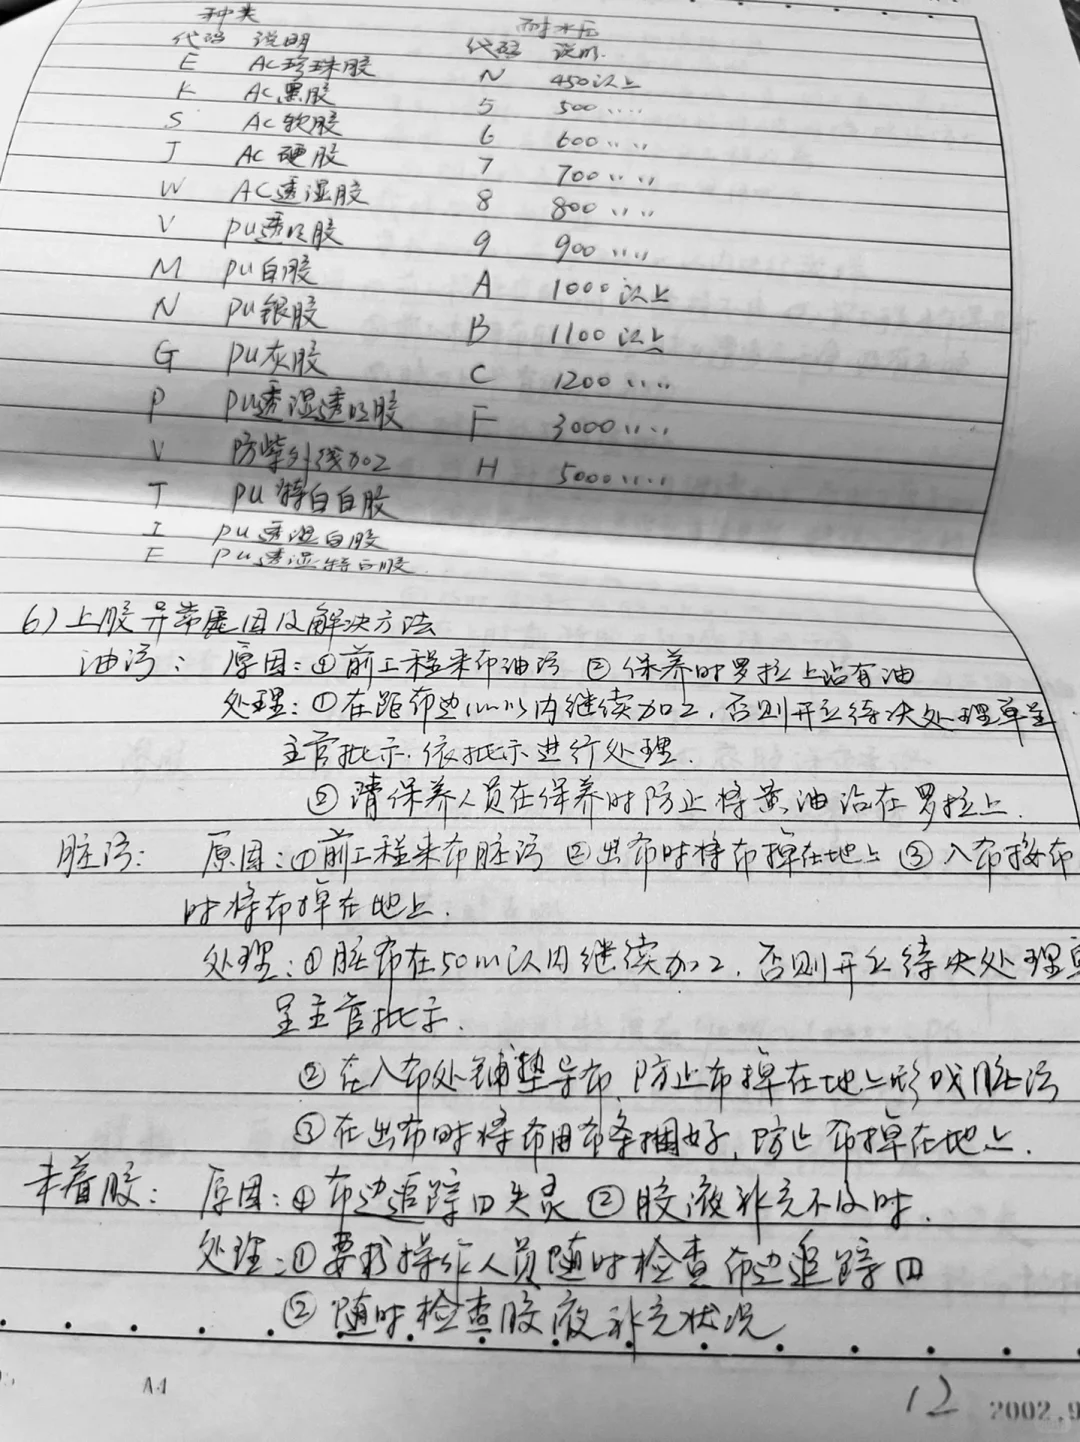 种类 耐水压
代码 说明 代码 说明.
E AC珍珠胶 N 450以上
K AC黑胶 5 500 〃〃
S AC软胶 6 600 〃〃
J AC硬胶 7 700 〃〃
W AC透湿胶 8 800 〃〃
V PU透明胶 9 900 〃〃
M PU白胶 A 1000以上
N PU银胶 B 1100以上
G PU灰胶 C 1200 〃〃
P PU透湿透明胶 F 3000 〃〃
V 防紫外线加工 H 5000 〃〃
T PU特白白胶
I PU透湿白胶
F PU透湿特白胶
6) 上胶异常原因及解决方法
油污: 原因:①前工程来布油污 ②保养时罗拉上沾有油
处理:①在距布边1cm以内继续加工,否则开立待决处理单呈
主官批示.依批示进行处理.
②请保养人员在保养时防止将黄油沾在罗拉上.
脏污: 原因:①前工程来布脏污 ②出布时将布掉在地上 ③入布接布
时将布掉在地上.
处理:①脏布在50m以内继续加工,否则开立待决处理单
呈主官批示.
②在入布处铺垫导布,防止布掉在地上形成脏污
③在出布时将布用布条捆好,防止布掉在地上.
未着胶: 原因:①布边追踪四失灵 ②胶液补充不及时.
处理:①要求操作人员随时检查布边追踪四
②随时检查胶液补充状况
A4 12 2002.9